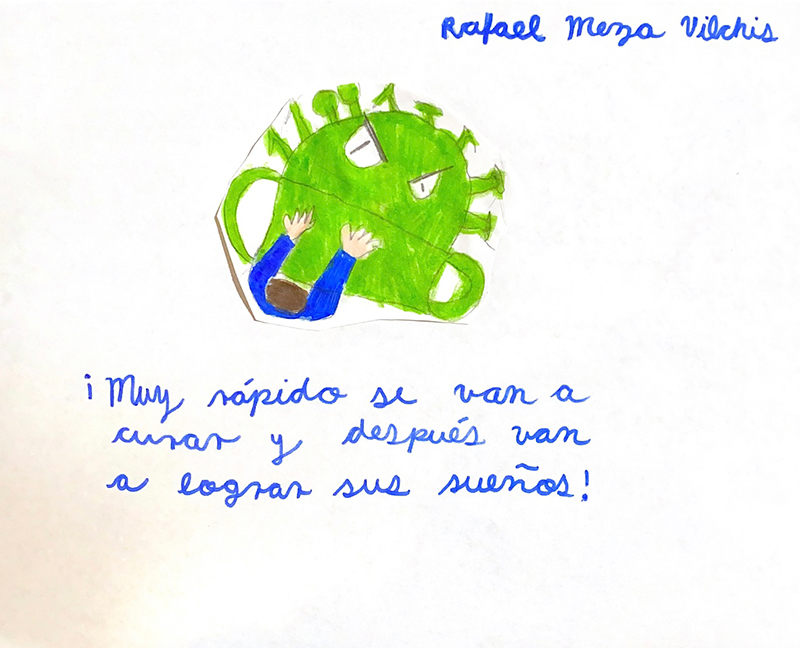 Rafael Meza Vilchis
¡Muy rápido se van a
curar y después van
a lograr sus sueños!